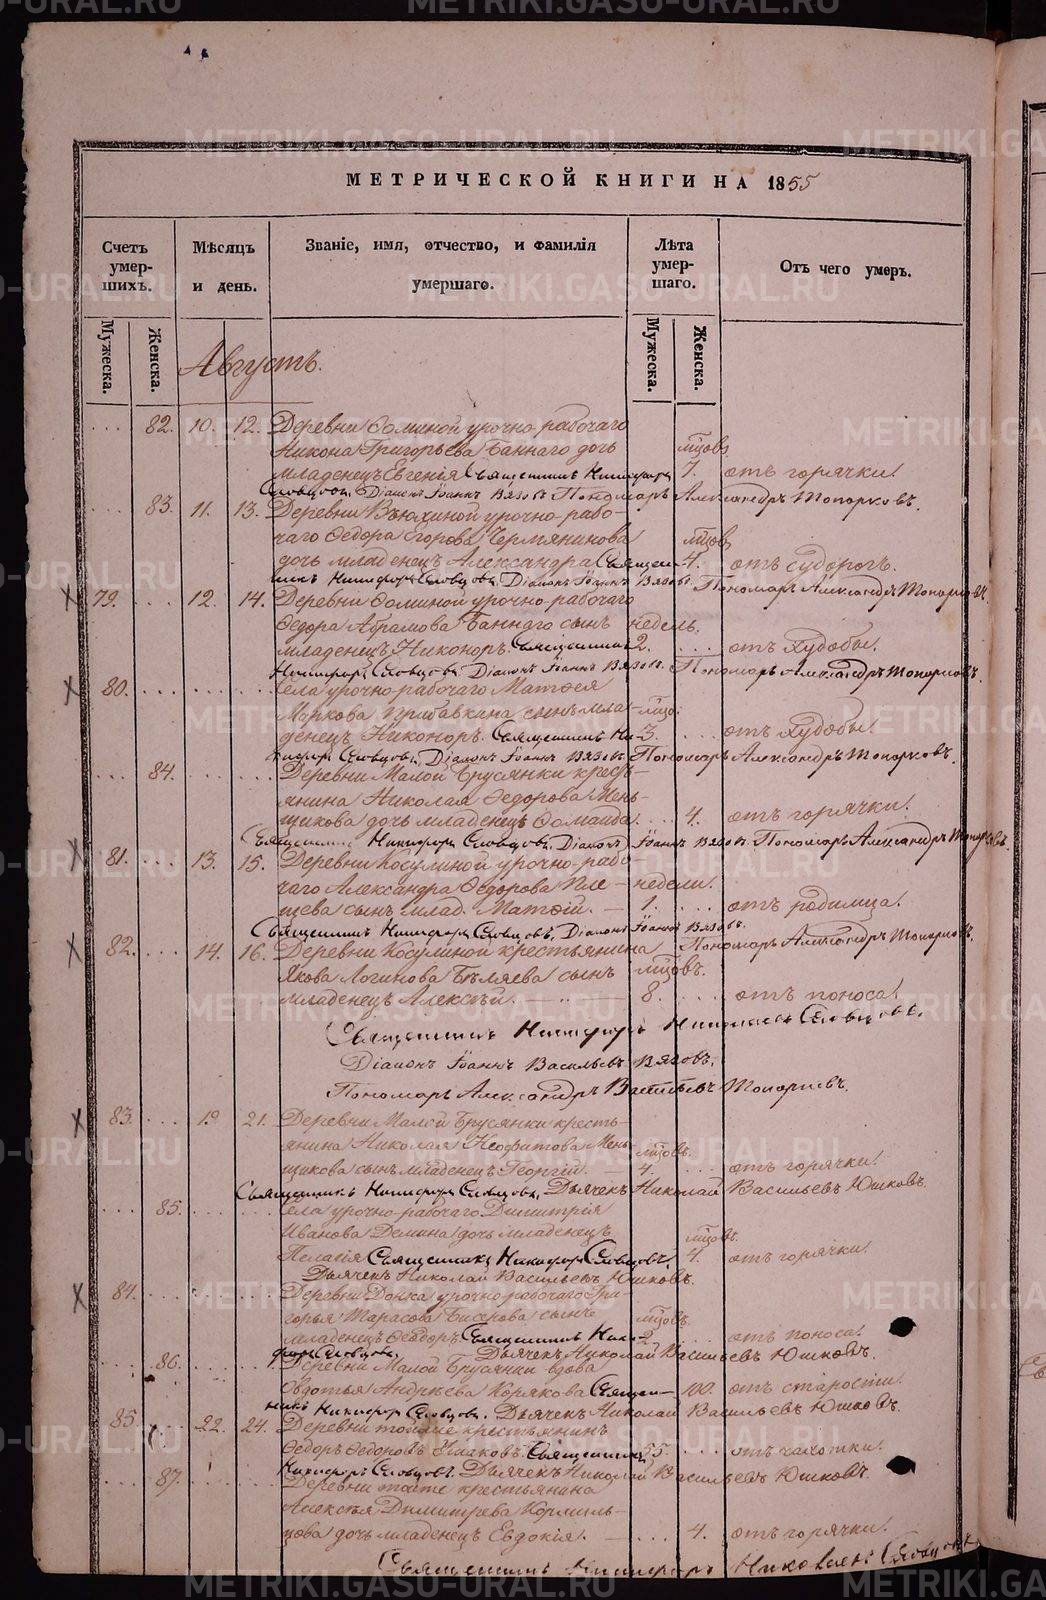 МЕТРИЧЕСКОЙ КНИГИ НА 1855
Счетъ умер-шихъ.
Мѣсяцъ и день.
Званіе, имя, отчество, и фамилія умершаго.
Лѣта умер-шаго.
Отъ чего умеръ.
Мужеска. Женска. Мужеска. Женска.
Августъ.
82. 10. 12. Деревни Ѳоминой урочно-рабочаго
Никона Григорьева Баннаго дочь мцовъ
младенецъ Евгенія Священникъ Никифоръ 7. отъ горячки.
Словцовъ, Діаконъ Іоаннъ Вязовъ Пономарь Александръ Топорковъ.
83. 11. 13. Деревни Вьюхиной урочно-рабо-
чаго Ѳедора Егорова Чермянинова мцовъ
дочь младенецъ Александра Священ- 4. отъ судорогъ.
никъ Никифоръ Словцовъ, Діаконъ Іоаннъ Вязовъ Пономарь Александръ Топорковъ.
79. 12. 14. Деревни Ѳоминой урочно-рабочаго
Ѳедора Абрамова Баннаго сынъ недель.
младенецъ Никоноръ. Священникъ 2. отъ худобы.
Никифоръ Словцовъ Діаконъ Іоаннъ Вязовъ. Пономарь Александръ Топорковъ.
80. Села урочно-рабочаго Матѳея
Маркова Прибавкина сынъ мла- мцо.
денецъ Никоноръ. Священникъ Ни- 3. отъ худобы.
кифоръ Словцовъ, Діаконъ Іоаннъ Вязовъ Пономарь Александръ Топорковъ.
84. Деревни Малой Брусянки кресть-
янина Николая Ѳедорова Мень-
щикова дочь младенецъ Домнида. 4. отъ горячки.
Священникъ Никифоръ Словцовъ, Діаконъ Іоаннъ Вязовъ. Пономарь Александръ Топорковъ.
81. 13. 15. Деревни Косулиной урочно-рабо-
чаго Александра Ѳедорова Пле- недели.
щева сынъ млад. Матѳій. 1. отъ родимца.
Священникъ Никифоръ Словцовъ, Діаконъ Іоаннъ Вязовъ.
82. 14. 16. Деревни Косулиной крестьянина Пономарь Александръ Топорковъ.
Якова Логинова Бѣляева сынъ мцовъ.
младенецъ Алексѣй. 8. отъ поноса.
Священникъ Никифоръ Николаевъ Словцовъ.
Діаконъ Іоаннъ Васильевъ Вязовъ.
Пономарь Александръ Топорковъ.
83. 19. 21. Деревни Малой Брусянки кресть-
янина Николая Неофитова Мень-
щикова сынъ младенецъ Георгій. мцовъ. 4. отъ горячки.
Священникъ Никифоръ Словцовъ, Дьячекъ Николай Васильевъ Юшковъ.
85. Села урочно-рабочаго Димитрія
Иванова Демина дочь младенецъ мцовъ.
Пелагія Священникъ Никифоръ Словцовъ. 4. отъ горячки.
Дьячекъ Николай Васильевъ Юшковъ.
84. Деревни урочно-рабочаго Гри-
горья Тарасова Бисерова сынъ мцовъ.
младенецъ Ѳеодоръ. Священникъ Ники- 2. отъ поноса.
форъ Словцовъ. Дьячекъ Николай Васильевъ Юшковъ.
86. Деревни Малой Брусянки вдова
Овдотья Андреева Корякова Священ- 100. отъ старости.
никъ Никифоръ Словцовъ. Дьячекъ Николай Васильевъ Юшковъ.
85. 22. 24. Деревни тойже крестьянинъ
Ѳедоръ Ѳедоровъ Священникъ 55. отъ чахотки.
Никифоръ Словцовъ. Дьячекъ Николай Васильевъ Юшковъ.
87. Деревни тойже крестьянина
Алексѣя Димитрева Кормиль-
цова дочь младенецъ Евдокія. 4. отъ горячки.
Священникъ Никифоръ Николаевъ Словцовъ
METRIKI.GASO-URAL.RU